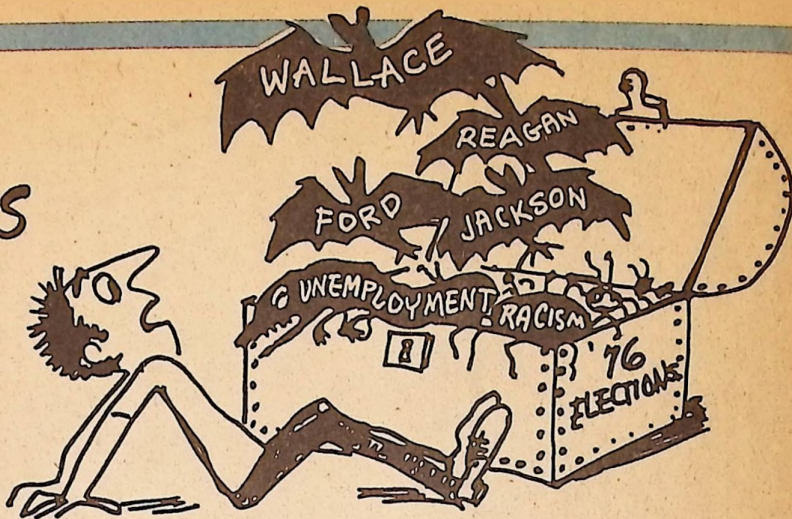 S
WALLACE
REAGAN
FORD
JACKSON
UNEMPLOYMENT
RACISM
'76
ELECTIONS